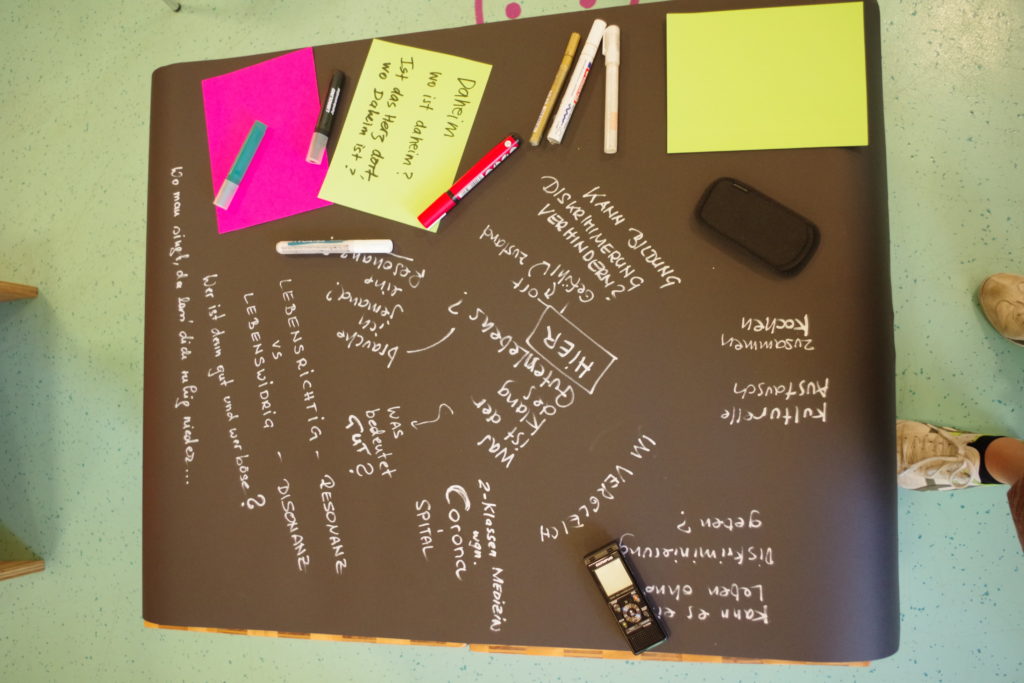 Daheim
wo ist daheim?
Ist das Herz dort,
wo Daheim ist?
KANN BILDUNG
DISKRIMINIERUNG
VERHINDERN?
Gefühl
zustand
ort
HIER
Was
ist der
Klang
des
Gutenlebens?
brauche
ich
jemand?
eine
Resonanz
Wo man singt da lass dich ruhig nieder...
Wer ist denn gut und wer böse?
LEBENSRICHTIG - RESONANZ
VS
LEBENSWIDRIG - DISONANZ
WAS
bedeutet
GUT?
2-Klassen MEDIZIN
wgn.
Corona
SPITAL
IM VERGLEICH
zusammen
kochen
Kulturelle
Austausch
Kann es ei
Leben ohne
Diskriminierung
geben?